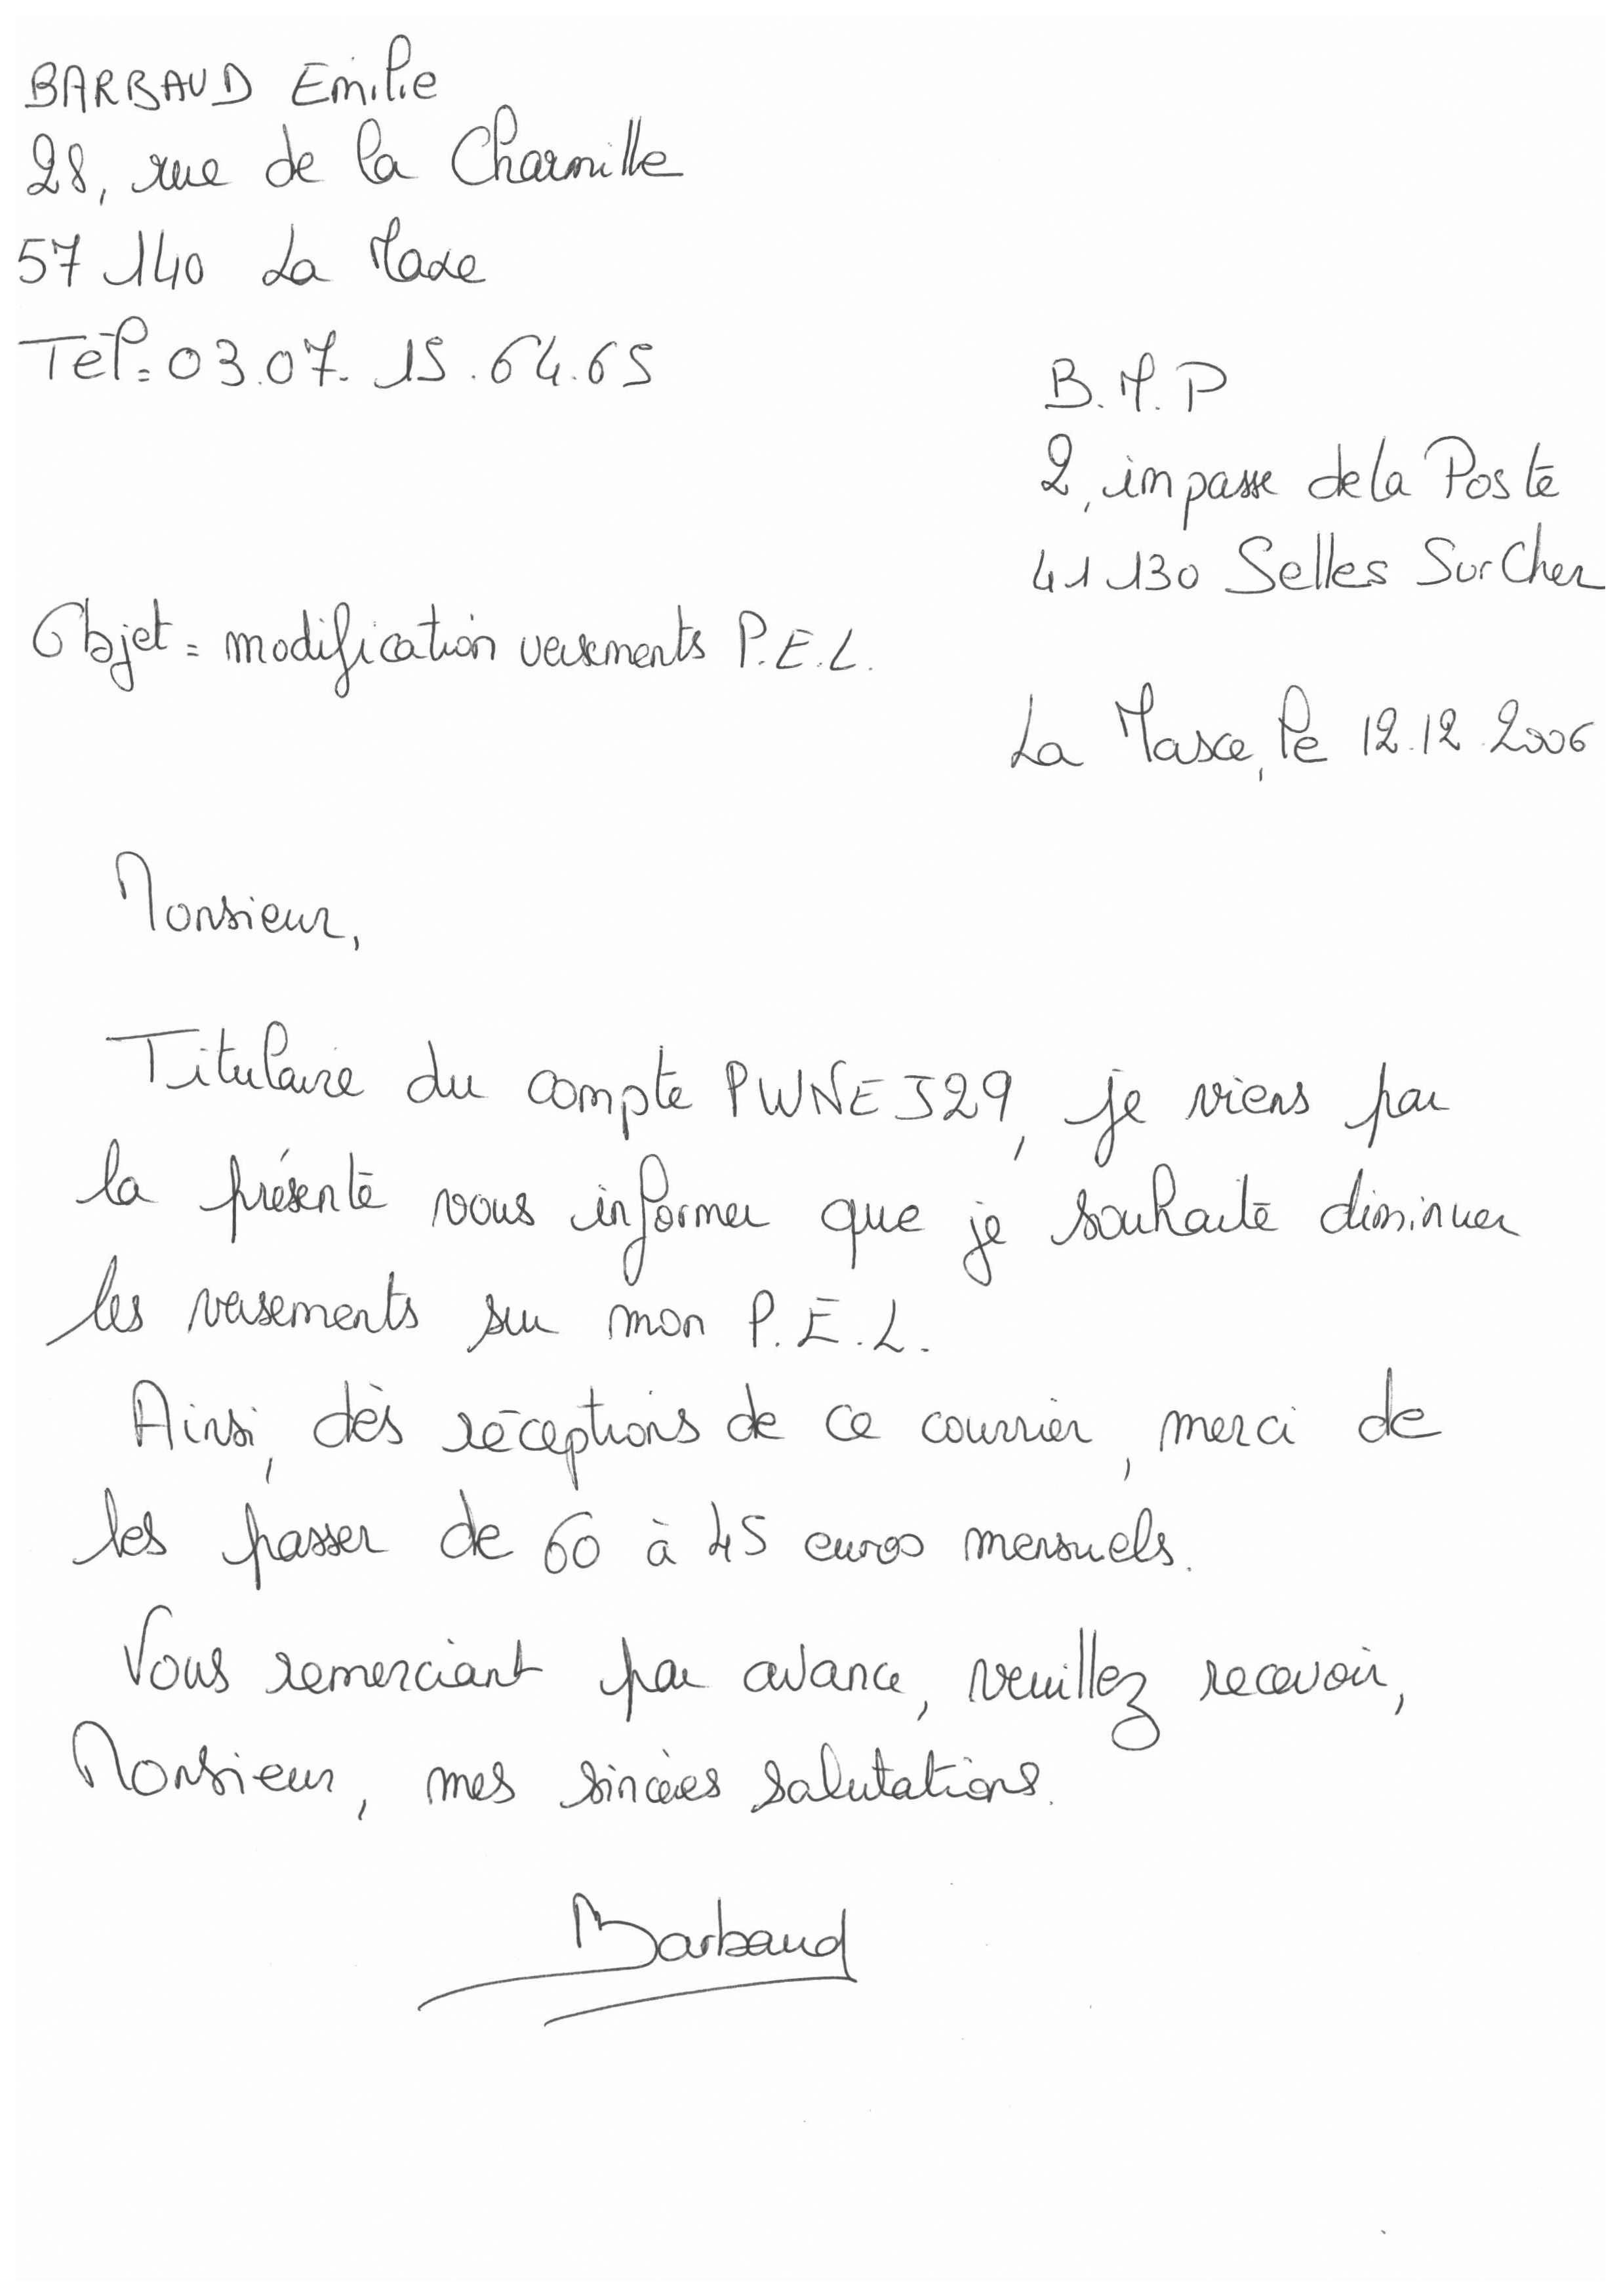 BARBAUD Emilie
28, rue de la Charmille
57 140 La Maxe
Tél: 03.07.15.64.65
B.M.P
2, impasse de la Poste
41 130 Selles Sur Cher
Objet: modification versements P.E.L.
La Maxe, le 12.12.2006
Monsieur,
Titulaire du compte PWNEJ29, je viens par
la présente vous informer que je souhaite diminuer
les versements sur mon P.E.L.
Ainsi, dès réceptions de ce courrier, merci de
les passer de 60 à 45 euros mensuels.
Vous remerciant par avance, veuillez recevoir,
Monsieur, mes sincères salutations.
Barbaud